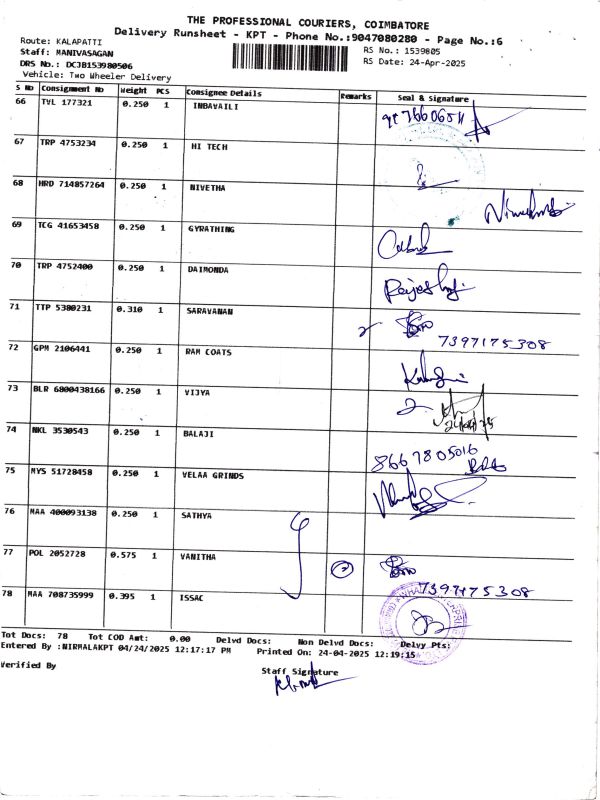 THE PROFESSIONAL COURIERS, COIMBATORE
Delivery Runsheet - KPT - Phone No.:9047080280 - Page No.:6
Route: KALAPATTI
Staff: MANIVASAGAN
DRS No.: DCJB153980506
Vehicle: Two Wheeler Delivery
RS No.: 1539805
RS Date: 24-Apr-2025
S No Consignment No Weight PCS Consignee Details Remarks Seal & Signature
66 TVL 177321 0.250 1 INBAVAILI
67 TRP 4753234 0.250 1 HI TECH
68 HRD 714857264 0.250 1 NIVETHA
69 TCG 41653458 0.250 1 GYRATHING
70 TRP 4752400 0.250 1 DAIMONDA
71 TTP 5380231 0.310 1 SARAVANAN 2 7397175308
72 GPM 2106441 0.250 1 RAM COATS
73 BLR 6800438166 0.250 1 VIJYA 2
74 NKL 3530543 0.250 1 BALAJI 8667805016
75 MYS 51728458 0.250 1 VELAA GRINDS
76 MAA 400093138 0.250 1 SATHYA
77 POL 2052728 0.575 1 VANITHA 2 7397175308
78 MAA 708735999 0.395 1 ISSAC
Tot Docs: 78 Tot COD Amt: 0.00 Delvd Docs: Non Delvd Docs: Delvy Pts:
Entered By :NIRMALAKPT 04/24/2025 12:17:17 PM Printed On: 24-04-2025 12:19:15
Verified By
Staff Signature